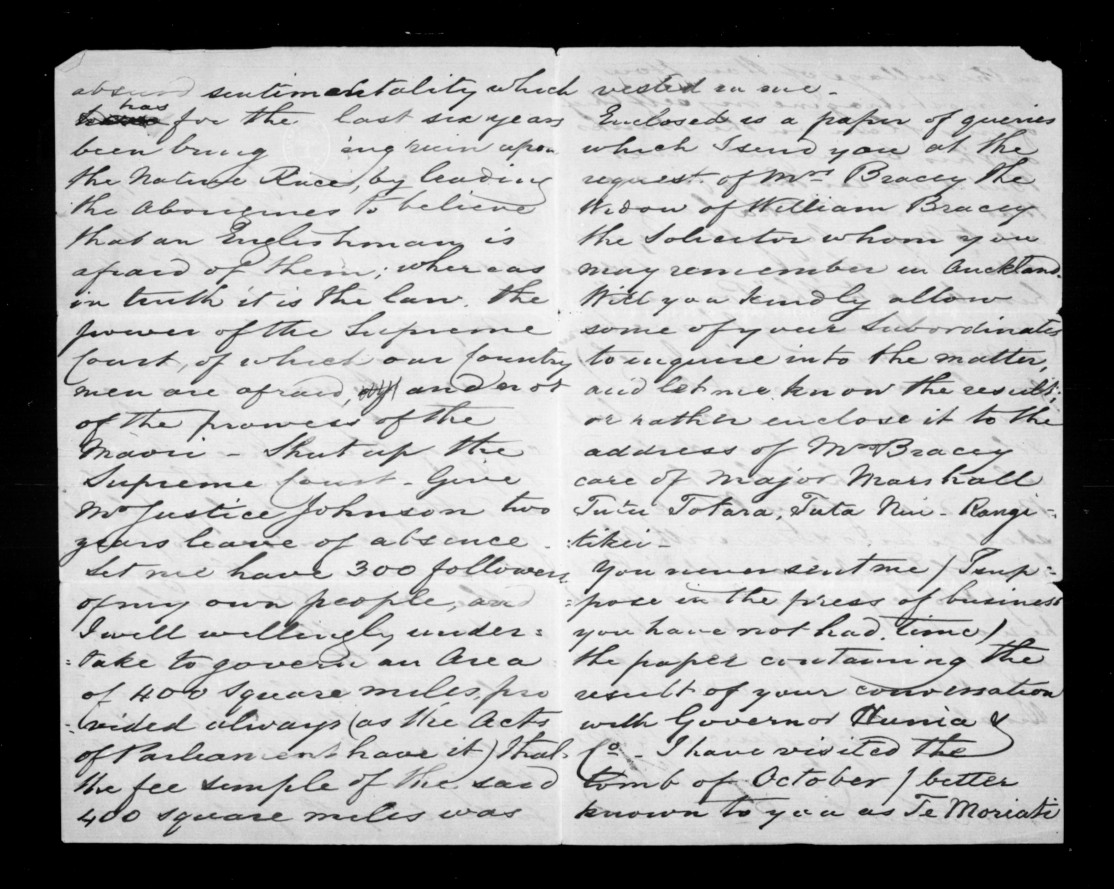 absurd sentimentality which
has for the last six years
been bring ing ruin upon
the Native Race, by leading
the Aborigines to believe
that an Englishman is
afraid of them; whereas
in truth it is the law. the
power of the Supreme
Court, of which our Country
men are afraid, and not
of the prowess of the
Maori - Shut up the
Supreme Court - Give
Mr Justice Johnson two
years leave of absence -
Let me have 300 followers
of my own people, and
I will willingly under=
=take to govern an Area
of 400 square miles, pro
=vided always (as the Acts
of Parliament have it) that
the fee simple of the said
400 square miles was
vested in me -
Enclosed is a paper of queries
which I send you at the
request of Mrs Bracey the
Widow of William Bracey
the Solicitor whom you
may remember in Auckland.
Will you kindly allow
some of your Subordinates
to inquire into the matter,
and let me know the result;
or rather enclose it to the
address of Mrs Bracey
care of Major Marshall
Tutu Totara, Tuta Nui - Rangi=
=tikei -
You never sent me (I sup=
=pose in the press of business
you have not had time)
the paper containing the
result of your conversation
with Governor Hunia &
Co. - I have visited the
tomb of October (better
known to you as Te Moriati